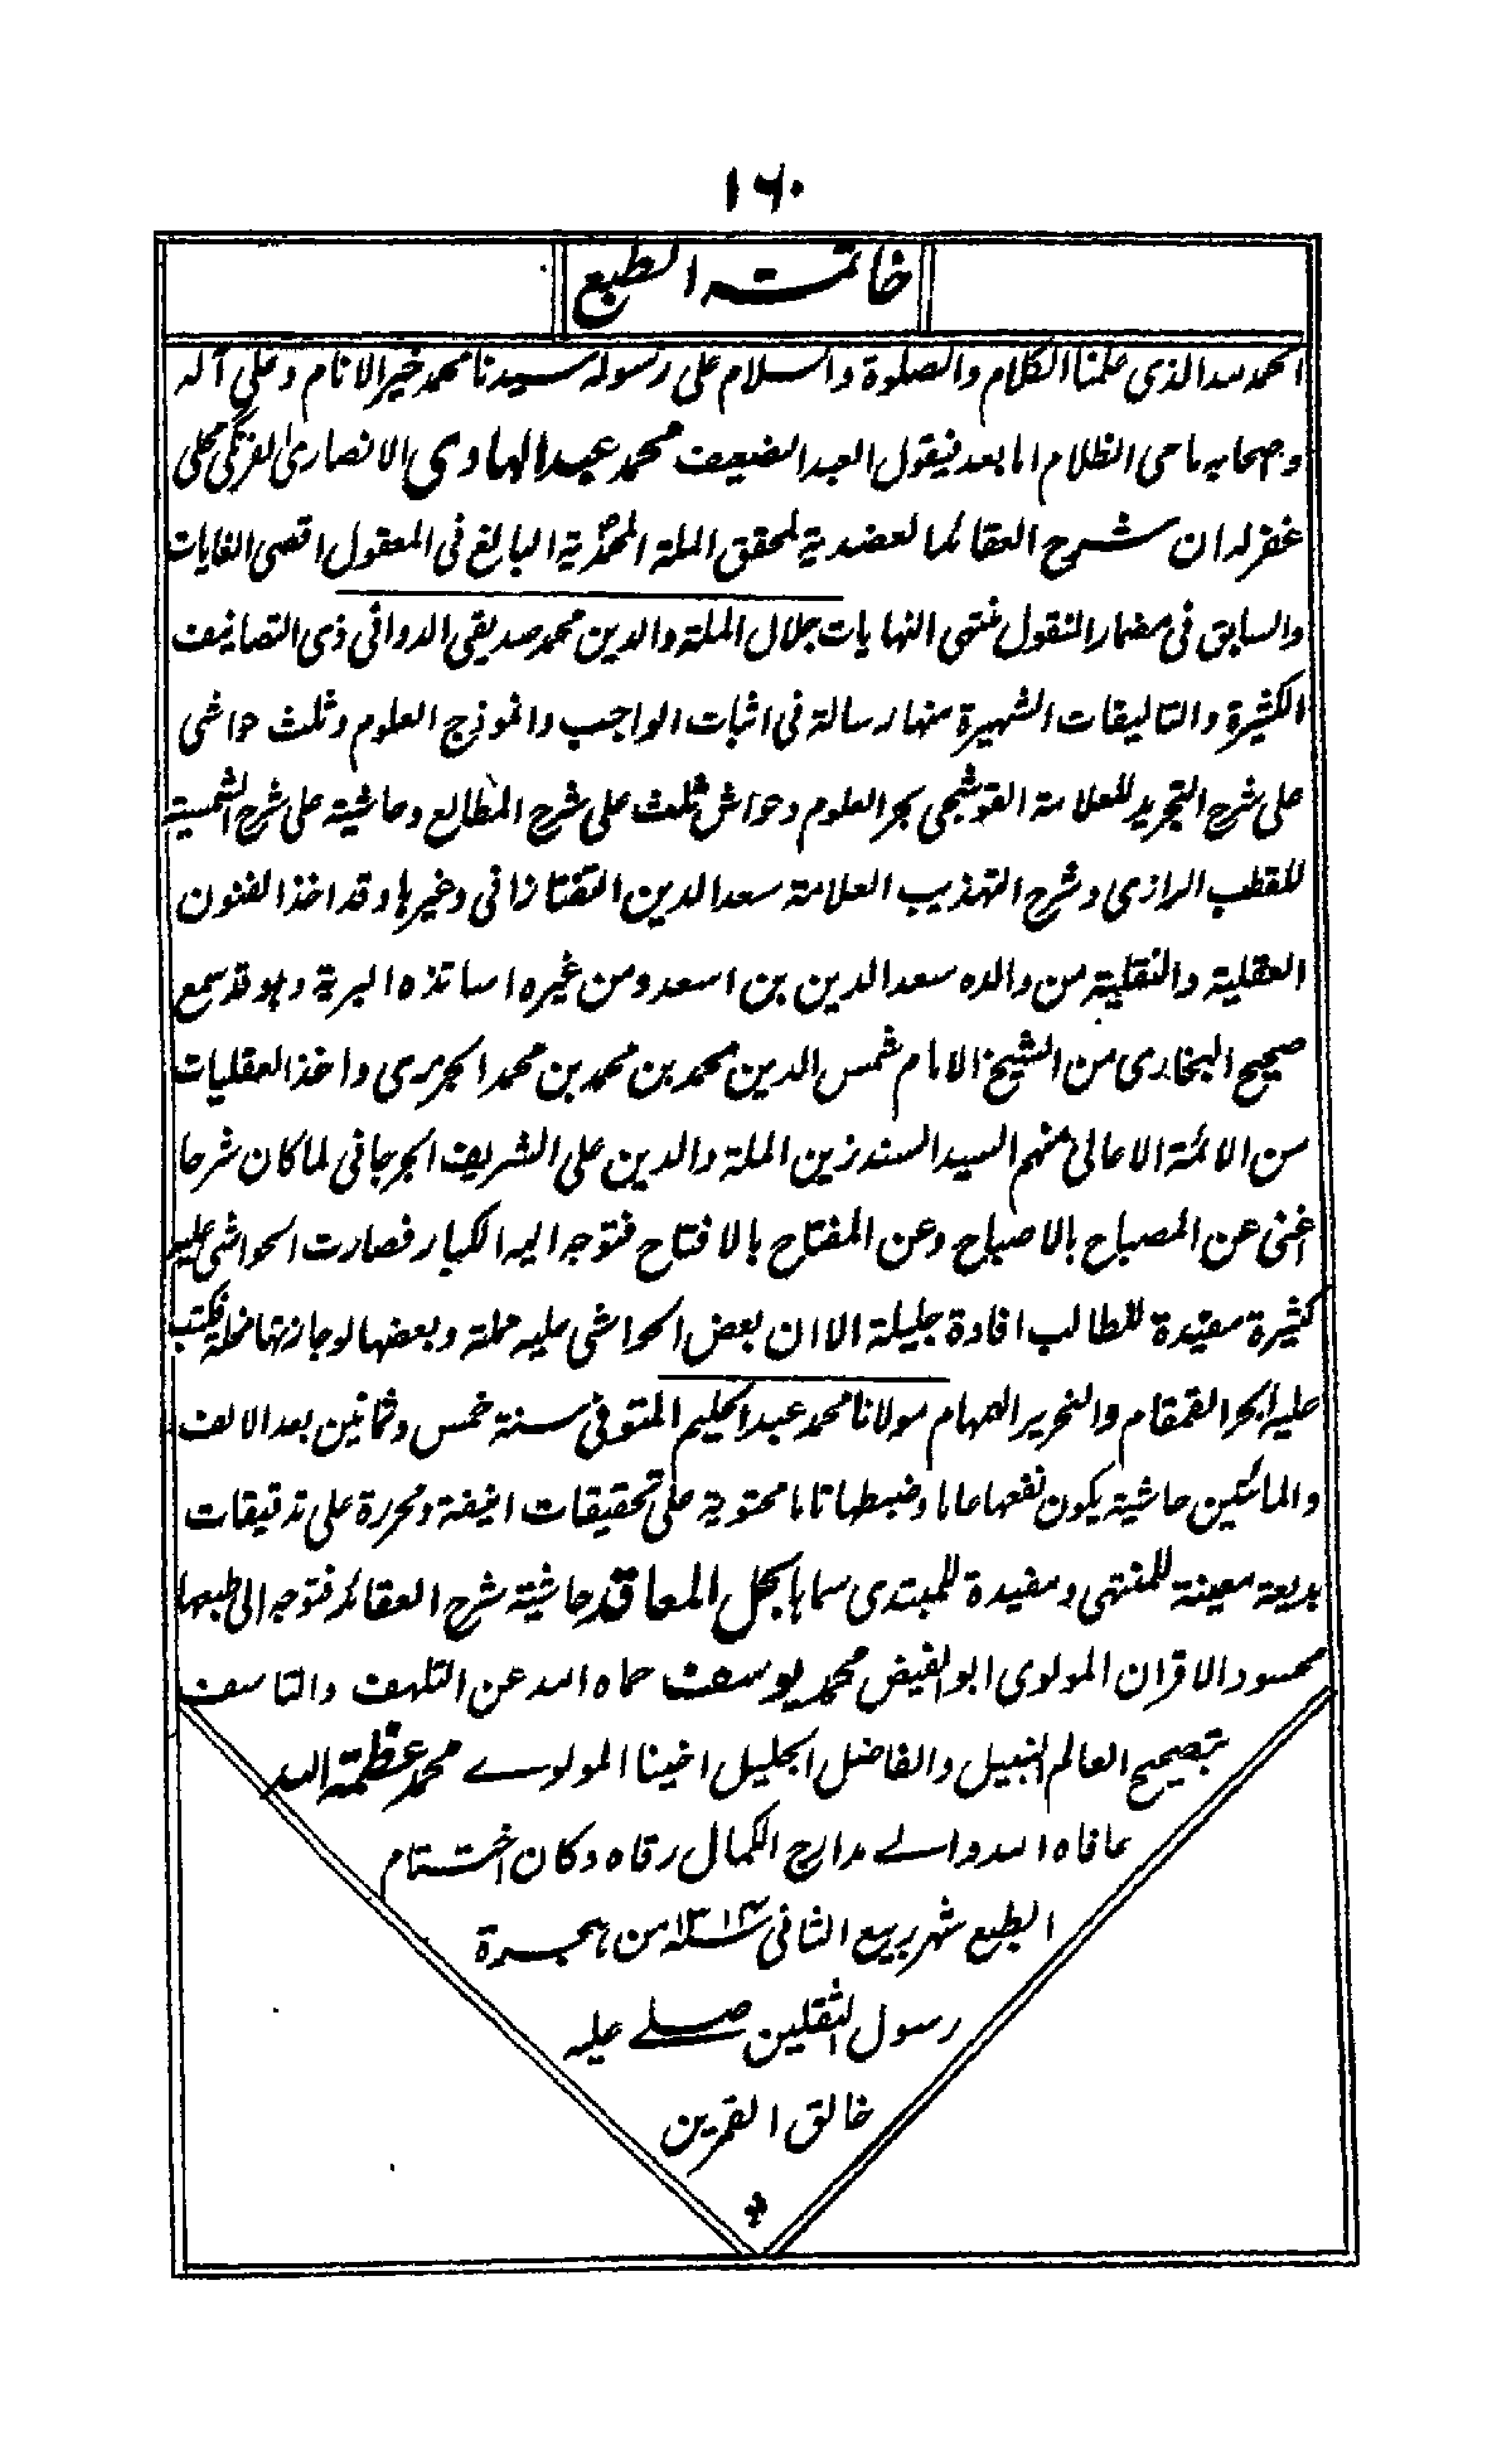 ۱۶۰
خاتمة الطبع
الحمد لله الذى علمنا الكلام والصلوة والسلام على رسوله سيدنا محمد خير الانام وعلى آله
وصحابه ماحى الظلام اما بعد فيقول العبد الضعيف محمد عبد الهادى الانصارى الفرنگى محلى
غفر له ان شرح العقائد العضدية لمحقق الملة المحمدية البالغ فى المعقول اقصى الغايات
والسابق فى مضمار النقول منتهى النهايات جلال الملة والدين محمد صديقى الدوانى ذى التصانيف
الكثيرة والتاليقات الشهيرة منها رسالة فى اثبات الواجب وانموذج العلوم وثلث حواشى
على شرح التجريد للعلامة القوشجى بحر العلوم وحواش ثلث على شرح المطالع وحاشية على شرح الشمسية
للقطب الرازى وشرح التهذيب العلامة سعد الدين التفتازانى وغيرها وقد اخذ الفنون
العقلية والنقلية من والده سعد الدين بن اسعد ومن غيره اساتذه البرية وهو قد سمع
صحيح البخارى من الشيخ الامام شمس الدين محمد بن محمد بن محمد الجزرى واخذ العقليات
من الائمة الاعالى منهم السيد السند زين الملة والدين على الشريف الجرجانى لما كان شرحا
اغنى عن المصباح بالاصباح وعن المفتاح بالافتتاح فتوجه اليه الكبار فصارت الحواشى عليه
كثيرة مفيدة للطالب افادة جليلة الا ان بعض الحواشى عليه مملة وبعضها لوجازتها مخلة فكتب
عليه البحر القمقام والنحرير الهمام مولانا محمد عبد الحليم المتوفى سنة خمس وثمانين بعد الالف
والمائتين حاشية يكون نفعها عاما وضبطها تاما محتوية على تحقيقات انيفة ومحررة على تدقيقات
بديعة معينة للمنتهى ومفيدة للمبتدى سماها بحل المعاقد حاشية شرح العقائد فتوجه الى طبعها
محسود الاقران المولوى ابو الفيض محمد يوسف حماه الله عن التلهف والتاسف
بتصحيح العالم النبيل والفاضل الجليل اخينا المولوے محمد عظمة الله
عافاه الله والے مدارج الكمال رقاه وكان اختتام
الطبع شهر ربيع الثانى سنة ۱۳۱۳ من هجرة
رسول الثقلين صلے عليه
خالق القمرين